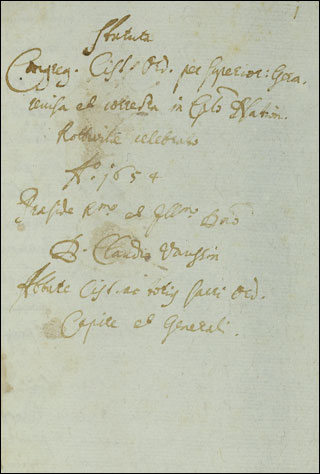 1
Statuta
Congreg. Cist. Ord. per Superior: Germa.
revisa et correcta in Caplo Nation.
Rottwilæ celebrato
Ao. 1654
Præside Rmo et Illmo Dno
D. Claudio Vaussin
Abbate Cist. ac totius sacri Ord.
Capite et Generali.